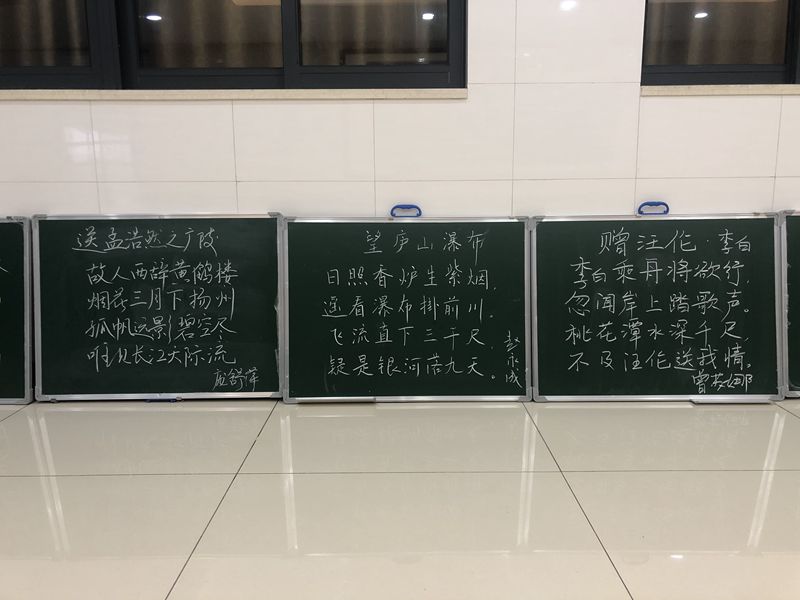 送孟浩然之广陵
故人西辞黄鹤楼
烟花三月下扬州
孤帆远影碧空尽
唯见长江天际流
望庐山瀑布
日照香炉生紫烟，
遥看瀑布掛前川。
飞流直下三千尺，
疑是银河落九天。
赠汪伦·李白
李白乘舟将欲行，
忽闻岸上踏歌声。
桃花潭水深千尺，
不及汪伦送我情。